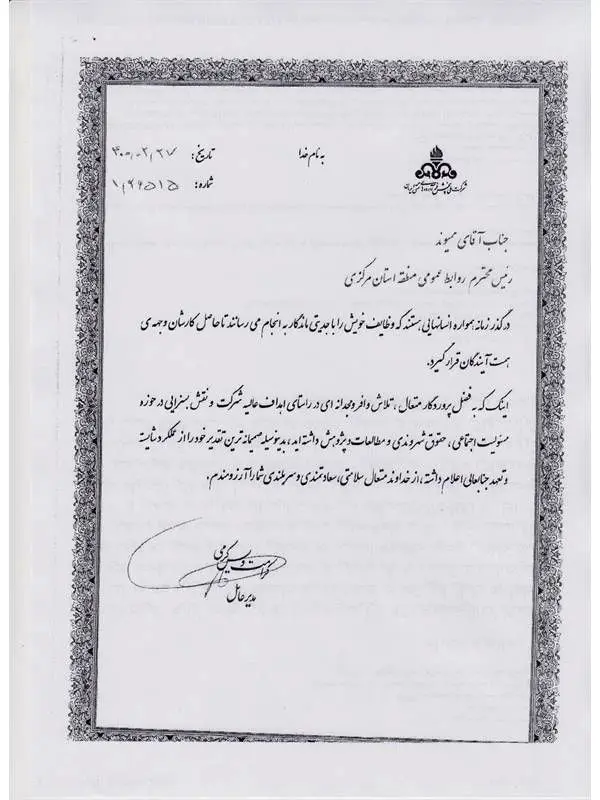 به نام خدا
تاریخ: ۴۰۰,۰۲,۲۷
شماره: ۱,۲۶۵۱۵
شرکت ملی پخش فرآورده‌های نفتی ایران
جناب آقای میوند
رئیس محترم روابط عمومی منطقه استان مرکزی
در گذر زمانه همواره انسانهایی هستند که وظایف خویش را با جدیتی ماندگار به انجام می رسانند تا حاصل کارشان وجهه ی
همت آیندگان قرار گیرد.
اینک که به فضل پروردگار متعال، تلاش وافر و مجدانه ای در راستای اهداف عالیه شرکت و نقش بسزایی در حوزه
مسئولیت اجتماعی، حقوق شهروندی و مطالعات و پژوهش داشته اید، بدینوسیله صمیمانه ترین تقدیر خود را از عملکرد شایسته
و تعهد جنابعالی اعلام داشته، از خداوند متعال سلامتی، سعادتمندی و سربلندی شما را آرزومندم.
کرامت ویس کرمی
مدیرعامل